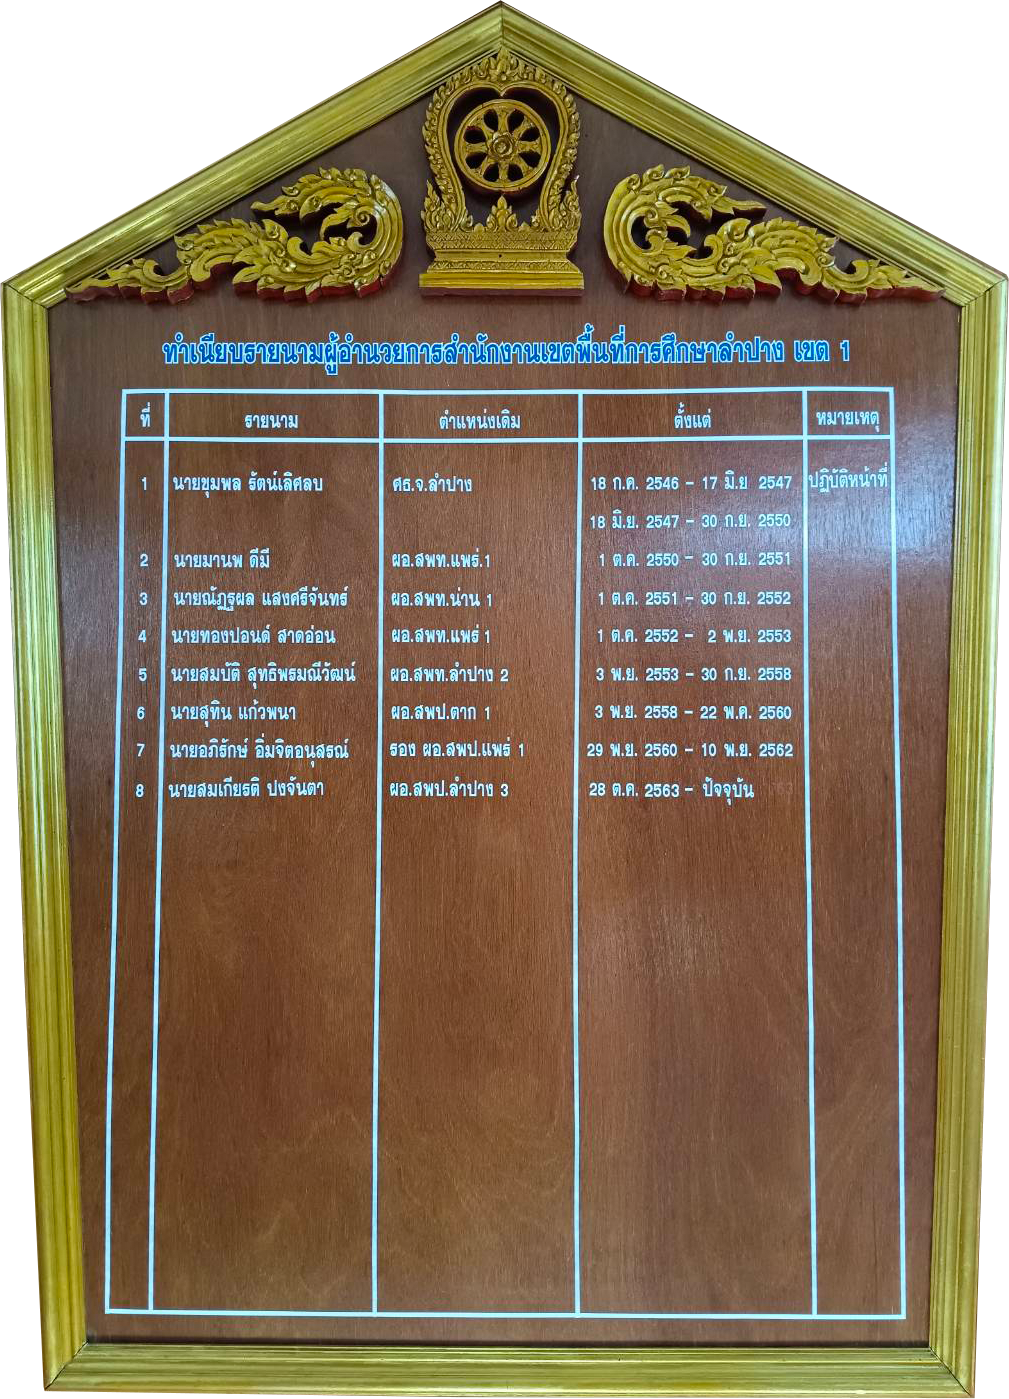 ทำเนียบรายนามผู้อำนวยการสำนักงานเขตพื้นที่การศึกษาลำปาง เขต 1
ที่ รายนาม ตำแหน่งเดิม ตั้งแต่ หมายเหตุ
1 นายชุมพล รัตน์เลิศลบ ศธ.จ.ลำปาง 18 ก.ค. 2546 - 17 มิ.ย 2547 ปฏิบัติหน้าที่
18 มิ.ย. 2547 - 30 ก.ย. 2550
2 นายมานพ ดีมี ผอ.สพท.แพร่.1 1 ต.ค. 2550 - 30 ก.ย. 2551
3 นายณัฏฐผล แสงศรีจันทร์ ผอ.สพท.น่าน 1 1 ต.ค. 2551 - 30 ก.ย. 2552
4 นายทองปอนด์ สาดอ่อน ผอ.สพท.แพร่ 1 1 ต.ค. 2552 - 2 พ.ย. 2553
5 นายสมบัติ สุทธิพรมณีวัฒน์ ผอ.สพท.ลำปาง 2 3 พ.ย. 2553 - 30 ก.ย. 2558
6 นายสุทิน แก้วพนา ผอ.สพป.ตาก 1 3 พ.ย. 2558 - 22 พ.ค. 2560
7 นายอภิรักษ์ อิ่มจิตอนุสรณ์ รอง ผอ.สพป.แพร่ 1 29 พ.ย. 2560 - 10 พ.ย. 2562
8 นายสมเกียรติ ปงจันตา ผอ.สพป.ลำปาง 3 28 ต.ค. 2563 - ปัจจุบัน